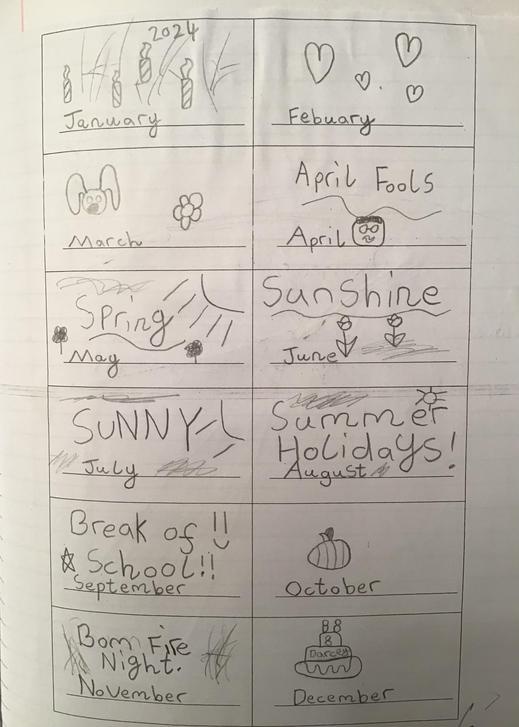 2024
January
Febuary
March
April Fools
April
Spring
May
Sunshine
June
SUNNY
July
Summer
Holidays!
August
Break of !!
School!!
September
October
Bom Fire
Night.
November
88
8
Darcey
December